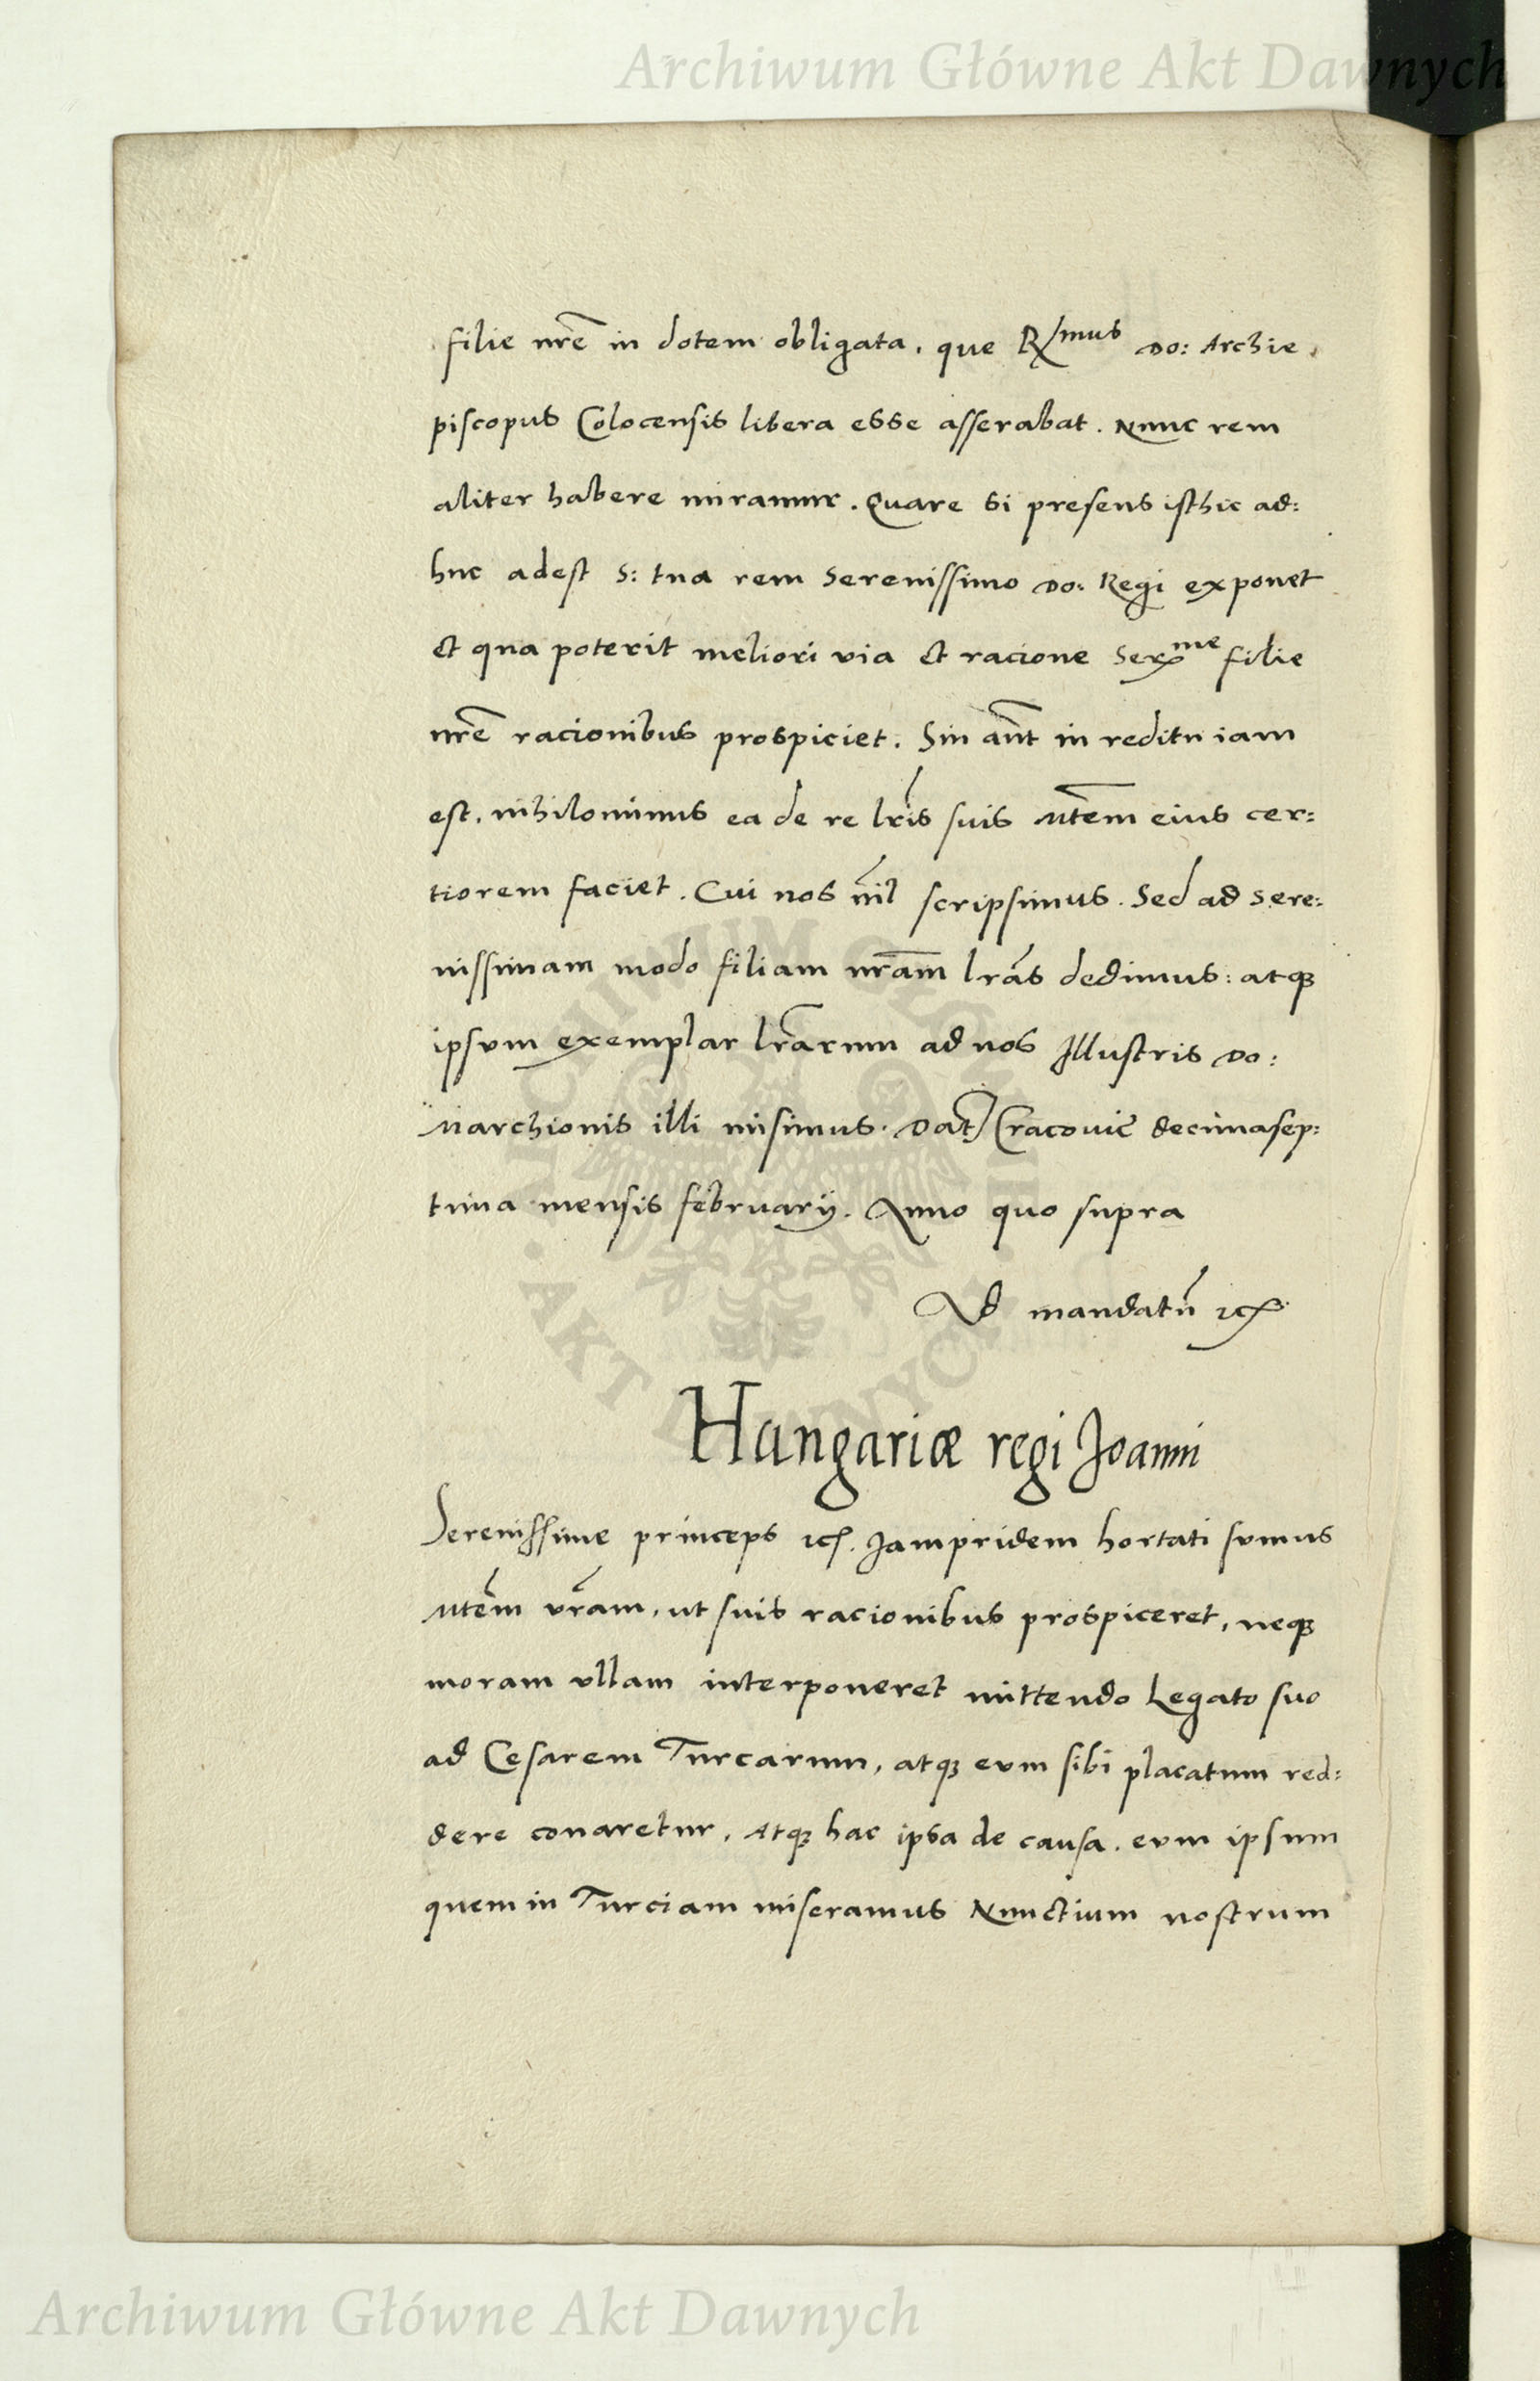 Archiwum Główne Akt Dawnych
filie nr̃e in dotem obligata. que R^mus Do: Archie
piscopus Colocensis libera esse asserabat. Nunc rem
aliter habere miramur. Quare si presens isthic ad:
huc adest S: tua rem Serenissimo Do: Regi exponet
et qua poterit meliori via et racione Ser^me filie
nr̃e racionibus prospiciet. Sin aũt in reditu iam
est, nihilominus ea de re lr̃is suis Mtẽm eius cer:
tiorem faciet. Cui nos nĩl scripsimus. Sed ad Sere:
nissimam modo filiam nrãm lrãs dedimus: atqꝫ
ipsum exemplar lrãrum ad nos Illustris Do:
Marchionis illi misimus. Dat̃ Cracovie decimasep:
tima mensis february. Anno quo supra
Ad mandatũ ⁊c
Hungariæ regi Joanni
Serenissime princeps ⁊c. Jampridem hortati sumus
Mtẽm vrãm, ut suis racionibus prospiceret, neqꝫ
moram ullam interponeret mittendo Legato suo
ad Cesarem Turcarum, atqꝫ eum sibi placatum red:
dere conaretur, Atqꝫ hac ipsa de causa. eum ipsum
quem in Turciam miseramus Nunctium nostrum
Archiwum Główne Akt Dawnych